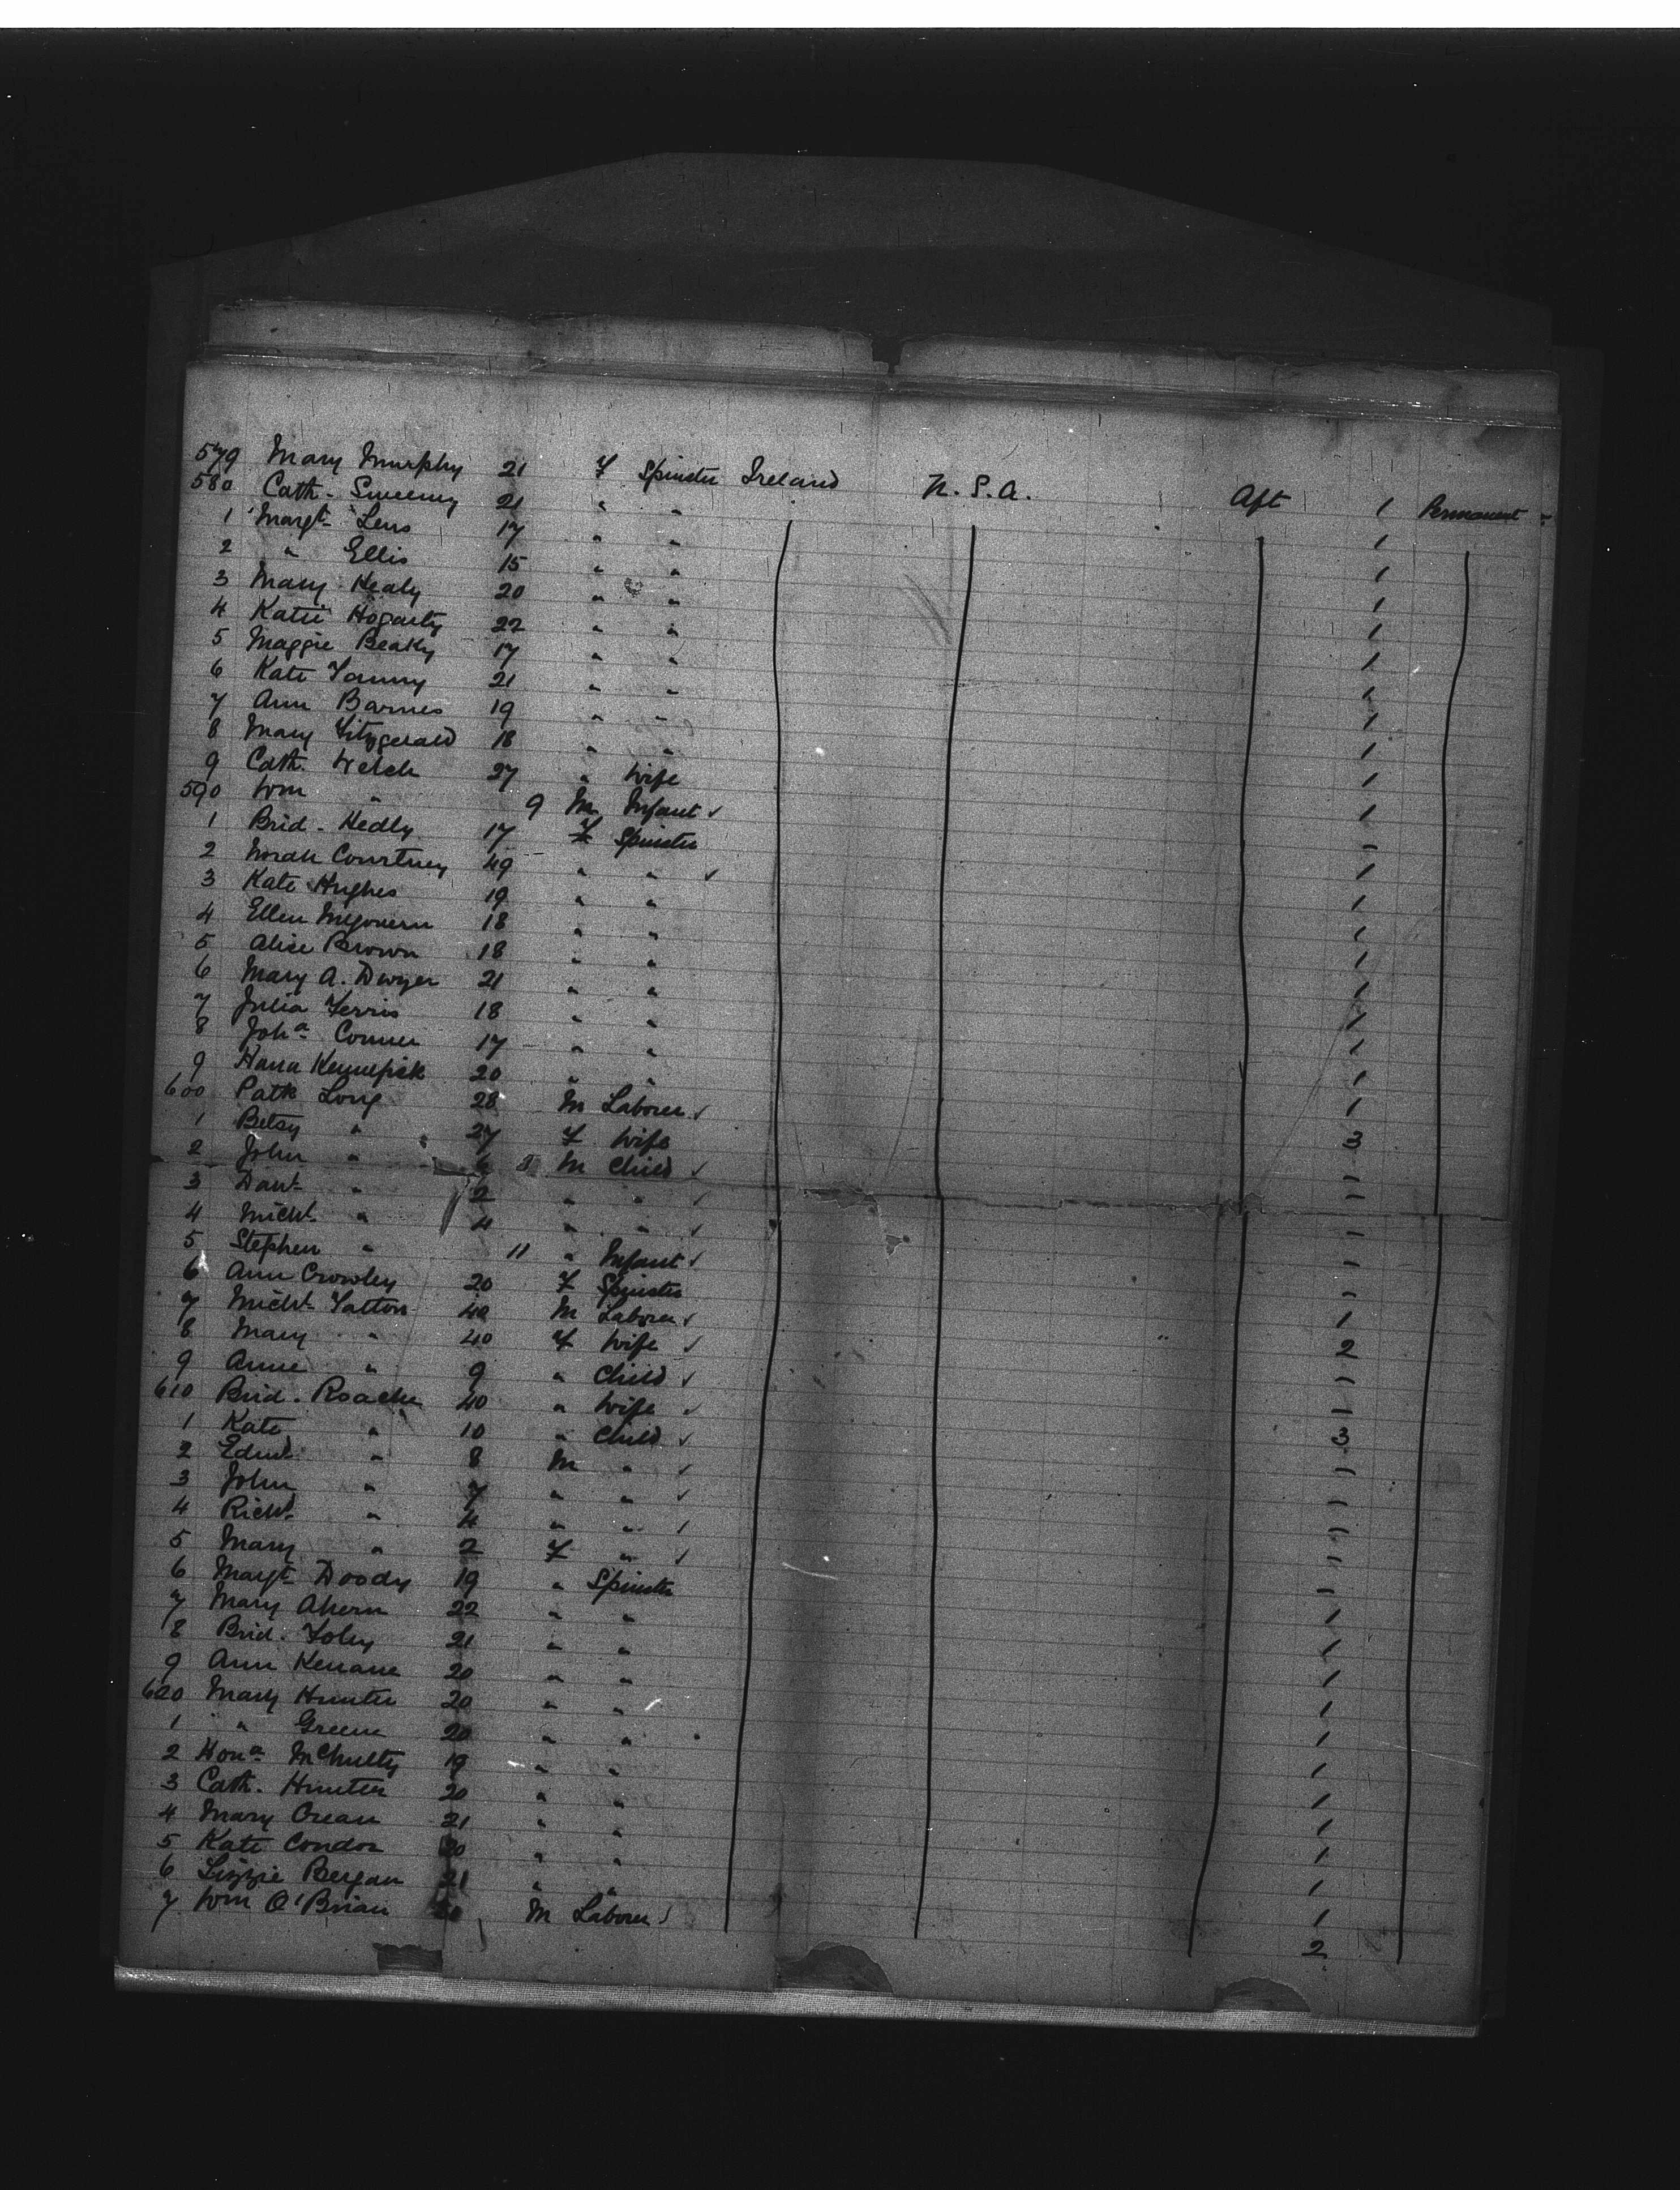 579 Mary Murphy 21 F Spinster Ireland U.S.A. Aft 1 Permanent
580 Cath. Sweeny 21 " " 1
1 Margt Lens 17 " " 1
2 " Ellis 15 " " 1
3 Mary Healy 20 " " 1
4 Katie Hogarty 22 " " 1
5 Maggie Beaky 17 " " 1
6 Kate 21 " " 1
7 Ann Barnes 19 " " 1
8 Mary Fitzgerald 18 " " 1
9 Cath. Welch 27 " Wife 1
590 Wm " 9 M Infant ✓ -
1 Brid. Hedly 17 F Spinster 1
2 Norah Courtney 49 " " ✓ 1
3 Kate Hughes 19 " " 1
4 Ellen McGovern 18 " " 1
5 Alice Brown 18 " " 1
6 Mary A. Dwyer 21 " " 1
7 Julia Ferris 18 " " 1
8 Joha Conner 17 " " 1
9 Hana Kennefick 20 " " 1
600 Patk Long 28 M Laborer ✓ 3
1 Betsy " 27 F Wife -
2 John " 6 M Child ✓ -
3 Danl " 2 " " ✓ -
4 Michl " 4 " " ✓ -
5 Stephen " 11 " Infant ✓ -
6 Ann Crowley 20 F Spinster 1
7 Michl Fatton 40 M Laborer ✓ 2
8 Mary " 40 F Wife ✓ -
9 Anne " 9 " Child ✓ -
610 Brid. Roache 40 " Wife ✓ 3
1 Kate " 10 " Child ✓ -
2 Edmd " 8 M " ✓ -
3 John " 7 " " ✓ -
4 Richd " 4 " " ✓ -
5 Mary " 2 F " ✓ -
6 Margt Doody 19 " Spinster 1
7 Mary Ahern 22 " " 1
8 Brid. Foley 21 " " 1
9 Ann Kenane 20 " " 1
620 Mary Hunter 20 " " 1
1 " Greene 20 " " 1
2 Hona McNulty 19 " " 1
3 Cath. Hunter 20 " " 1
4 Mary Crean 21 " " 1
5 Kate Condon 20 " " 1
6 Lizzie Bergan 21 " " 1
7 Wm O'Brian M Laborer ✓ 2